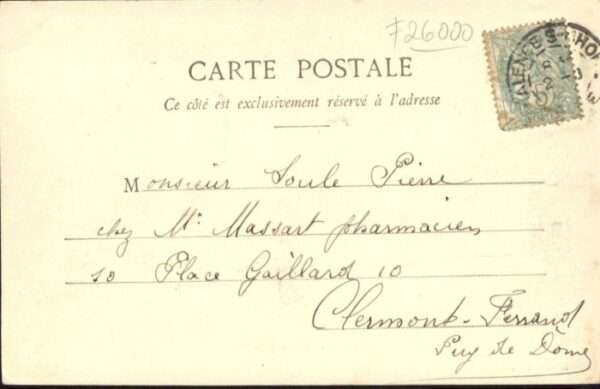 F26000
CARTE POSTALE
Ce côté est exclusivement réservé à l'adresse
Monsieur Soule Pierre
chez Mr. Massart pharmacien
10 Place Gaillard 10
Clermont-Ferrand
Puy de Dôme